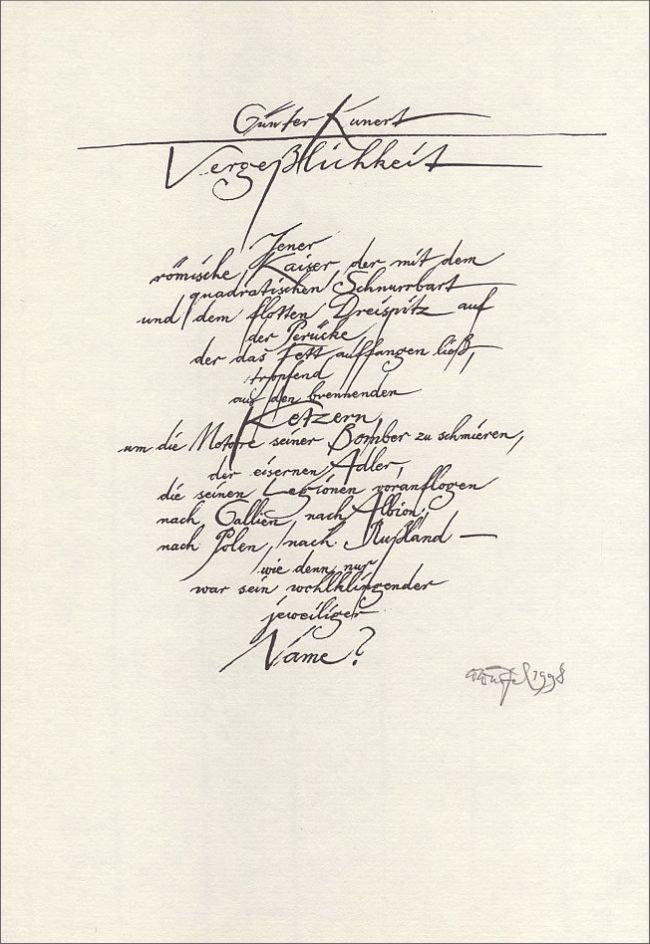 Günter Kunert
Vergeßlichkeit
Jener
römische Kaiser der mit dem
quadratischen Schnurrbart
und dem flotten Dreispitz auf
der Perücke
der das Fett auffangen ließ,
tropfend
aus den brennenden
Ketzern,
um die Motore seiner Bomber zu schmieren,
der eisernen Adler,
die seinen Legionen voranflogen
nach Gallien, nach Albion,
nach Polen, nach Rußland —
wie denn nur
war sein wohlklingender
jeweiliger
Name?
1998